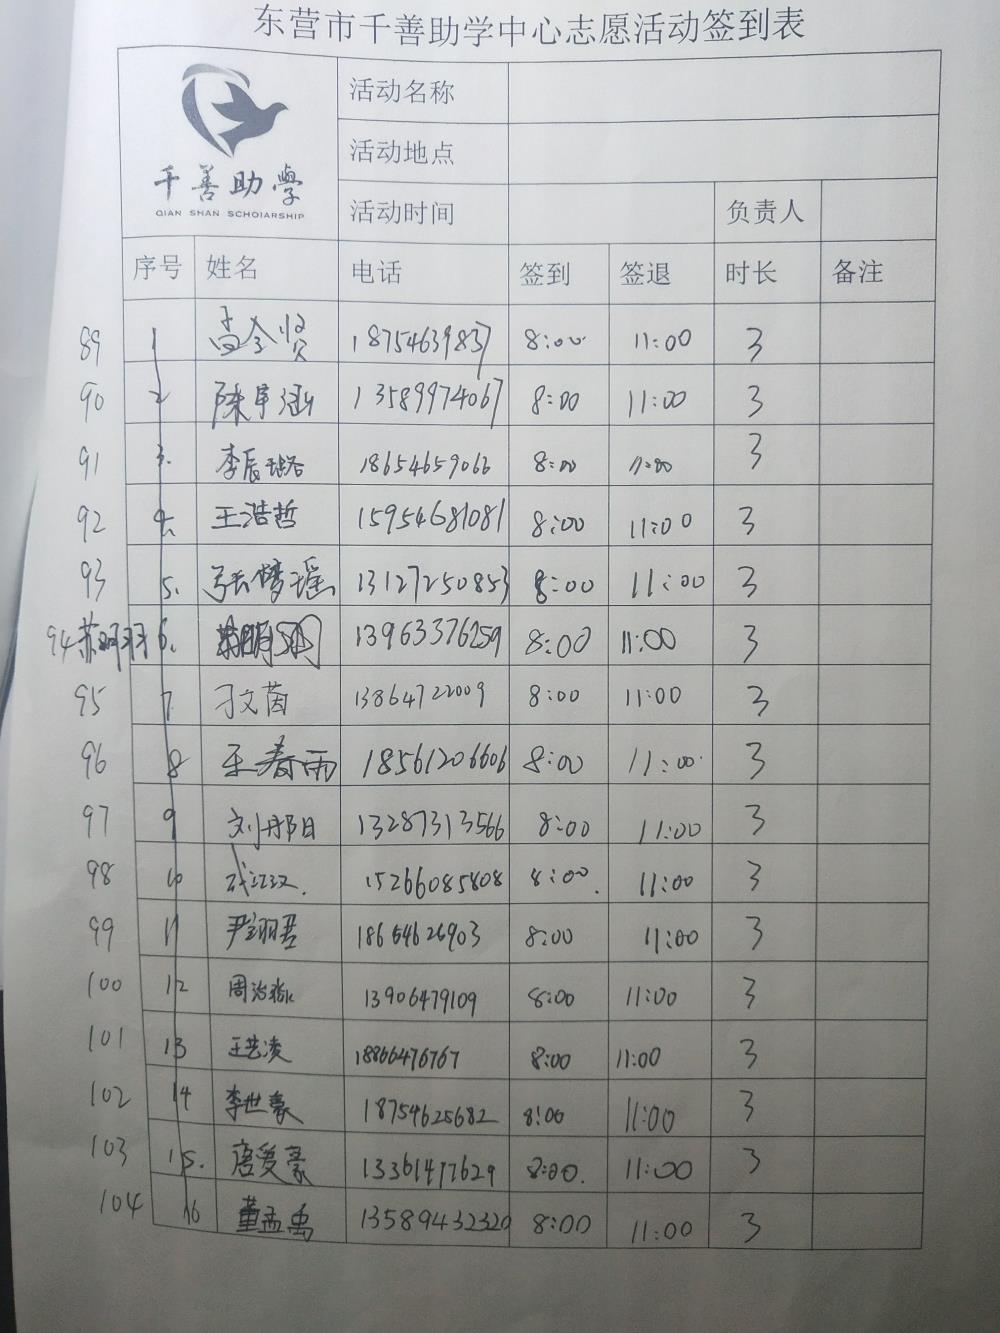 东营市千善助学中心志愿活动签到表
千善助学
QIAN SHAN SCHOIARSHIP
活动名称
活动地点
活动时间 负责人
序号 姓名 电话 签到 签退 时长 备注
89 1 18754639837 8:00 11:00 3
90 2 13589974067 8:00 11:00 3
91 3. 李辰璐 18654659066 8:00 11:00 3
92 4. 王浩哲 15954681081 8:00 11:00 3
93 5. 张梦瑶 13127250853 8:00 11:00 3
94 6. 13963376259 8:00 11:00 3
95 7 刁文茵 13864722009 8:00 11:00 3
96 8 王春雨 18561206606 8:00 11:00 3
97 9 13287313566 8:00 11:00 3
98 10 15266085808 8:00. 11:00 3
99 11 尹翊君 18654626903 8:00 11:00 3
100 12 13906479109 8:00 11:00 3
101 13 王艺凌 18866476767 8:00 11:00 3
102 14 李世豪 18754625682 8:00 11:00 3
103 15. 唐爱豪 13361477629 8:00. 11:00 3
104 16 董孟禹 13589432329 8:00 11:00 3